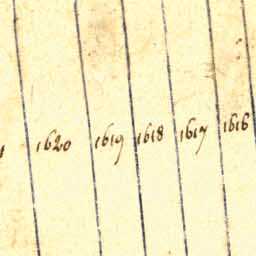 1620 1619 1618 1617 1616